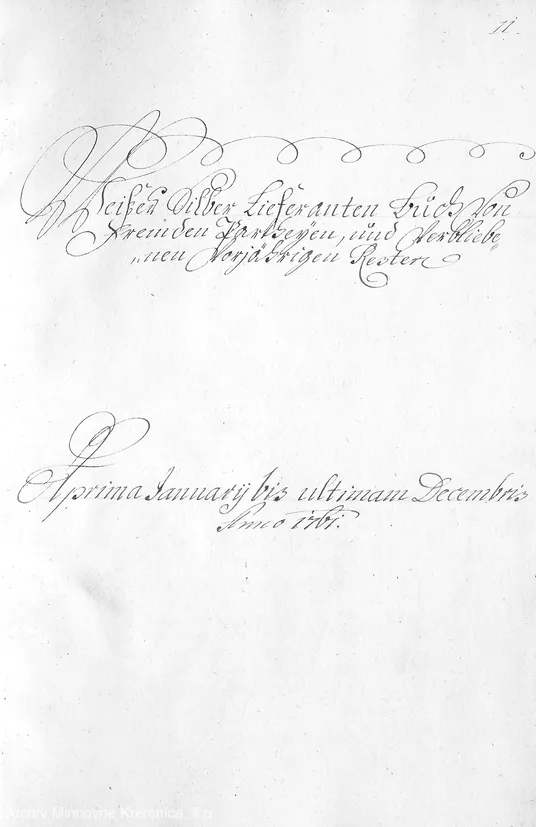 11.
Weißen Silber Lieferanten Buch Von
Fremden Partheÿen, und Verbliebe„
„nen Vorjährigen Resten
A prima Januarij bis ultimam Decembris
Anno 1761.
Archiv Mincovne Kremnica, š.p.